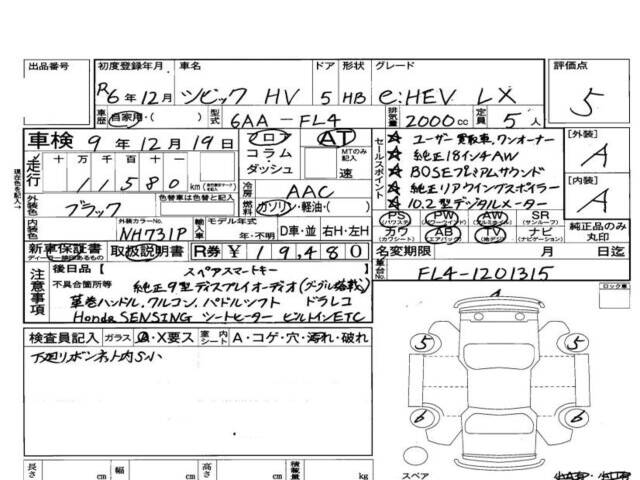 出品番号
初度登録年月 車名 ドア 形状 グレード 評価点
R6年12月 シビック HV 5 HB e:HEV LX 5
車歴 自家用・( ) 型式 6AA-FL4 排気量 2000cc 定員 5人
車検 9年12月19日
ロ コラム ダッシュ
AT MTのみ記入 速
セールスポイント
★ ユーザー買取車、ワンオーナー
★ 純正18インチAW
★ BOSEプレミアムサウンド
★ 純正リアウイングスポイラー
★ 10.2型デジタルメーター
[外装] A
[内装] A
現在色を記入→
走行 十万千百十
11580 km
冷房 AAC
外装色 ブラック 色替車は色替と記入
燃料 ガソリン・軽油・( )
PS (パワステ) PW (パワーウインド) AW (アルミホイル) SR (サンルーフ)
カワ (カワシート) AB (エアバッグ) TV (地デジ) ナビ (ナビゲーション)
純正品のみ丸印
外装カラーNo. NH731P
輸入車 モデル年式 年・不明 D車・並 右H・左H
新車保証書 取扱説明書 R券 ¥19,480
ディーラー捺印あるもの
名変期限 月 日迄
車台No. FL4-1201315
注意事項
後日品〔 スペアスマートキー 〕
不具合箇所等 純正9型ディスプレイオーディオ(グーグル搭載)
革巻ハンドル、クルコン、パドルシフト ドラレコ
Honda SENSING シートヒーター ビルトインETC
ロック車
検査員記入 ガラス A・X要ス 室内シート A・コゲ・穴・汚れ・破れ
下廻リボンネット内S小
A
5 5
6 6
スペア
長さ cm 幅 cm 高さ cm 積載量 kg